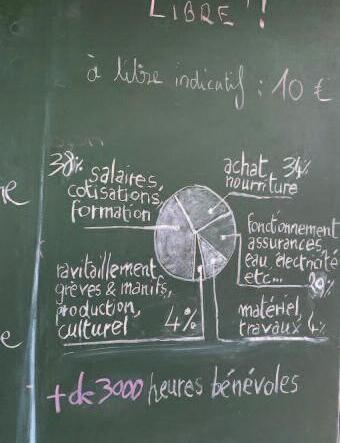 LIBRE !!
à titre indicatif : 10 €
38% salaires,
cotisations,
formation
achat 34%
nourriture
fonctionnement
assurances,
eau, électricité
etc...
ravitaillement
grèves & manifs,
production,
culturel 4%
matériel,
travaux 4%
+ de 3000 heures bénévoles